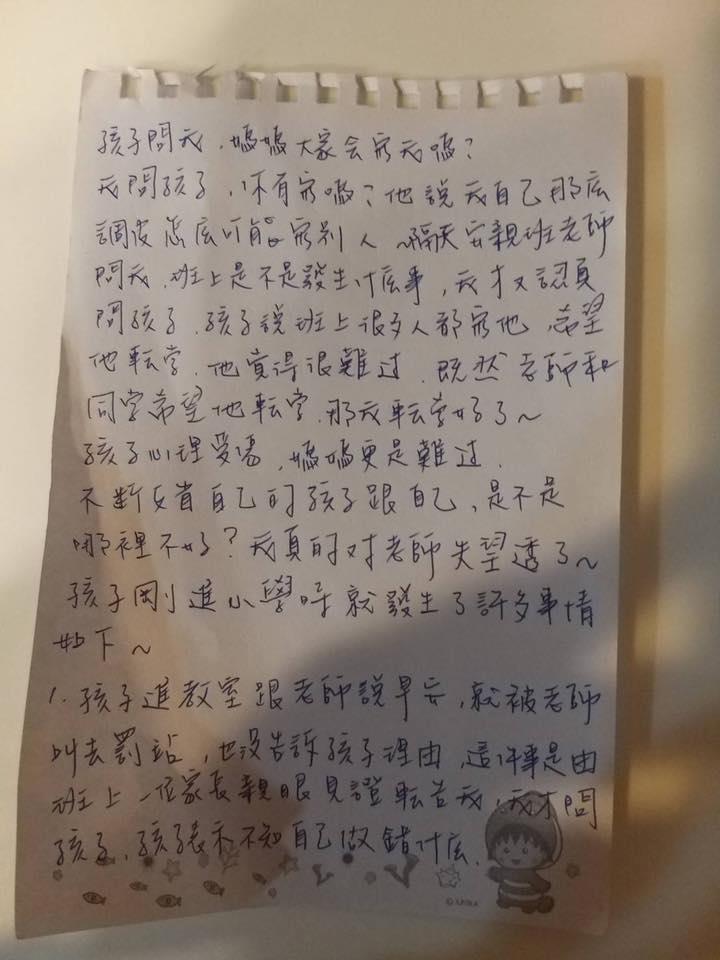 孩子問我，媽媽大家会容我嗎？
我問孩子，你有容嗎？他說我自己那庅
調皮怎庅可能容別人～隔天安親班老師
問我，班上是不是發生什庅事，我才又認真
問孩子，孩子說班上很多人都容他，希望
他転学，他覺得很難过，既然老師和
同学希望他転学，那我転学好了～
孩子心理受傷，媽媽更是難过，
不断反省自己的孩子跟自己，是不是
哪裡不好？我真的对老師失望透了～
孩子剛進小學時就發生了許多事情
如下～
1. 孩子進教室跟老師說早安，就被老師
叫去罰站，也没告訴孩子理由，這件事是由
班上一位家長親眼見證転告我，我才問
孩子，孩表示不知自己做錯什庅．